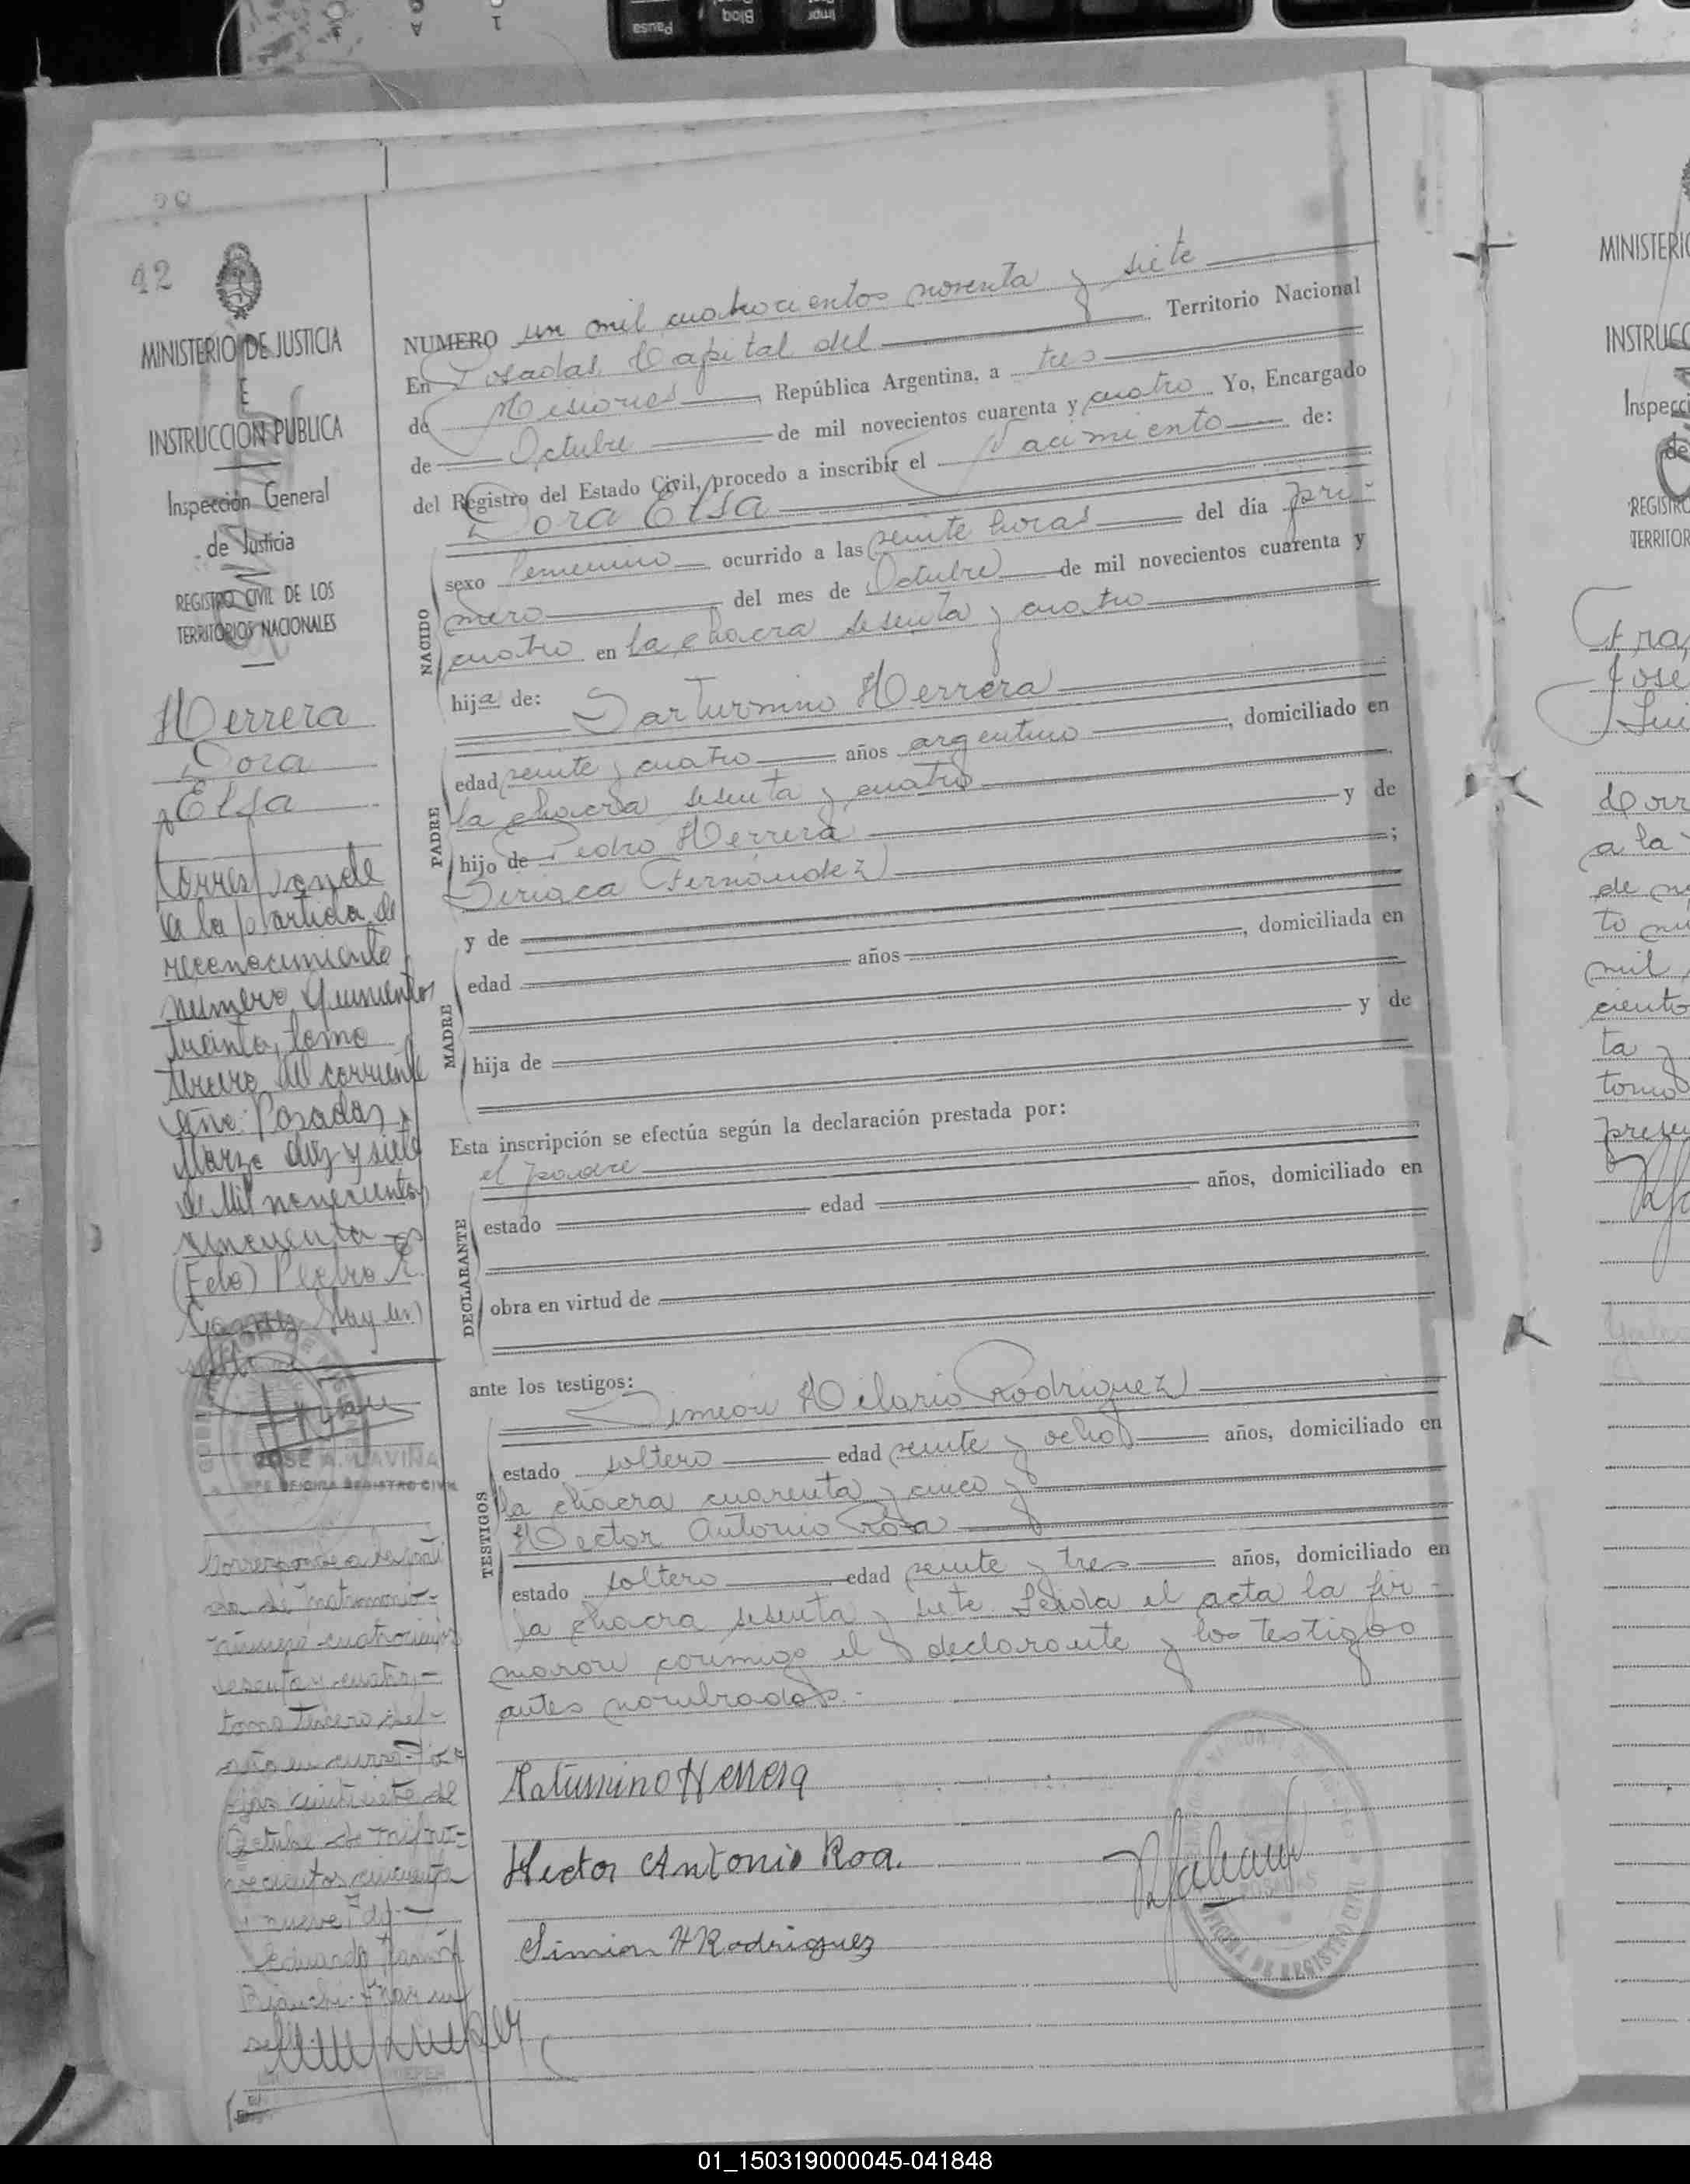 Pausa
Bloq
Impr
42
MINISTERIO DE JUSTICIA
E
INSTRUCCION PUBLICA
Inspección General
de Justicia
REGISTRO CIVIL DE LOS
TERRITORIOS NACIONALES
Herrera
Dora
Elsa
Corresponde
a la partida de
reconocimiento
numero quinientos
treinta, tomo
tercero del corriente
año. Posadas,
Marzo diez y siete
de Mil novecientos
cincuenta
(Fdo) Pedro
Hay un
sello
JOSE A. LAVIÑA
JEFE OFICINA REGISTRO CIVIL
Corresponde a la parti
da de matrimonio
número cuatrocientos
sesenta y cuatro,
tomo tercero del
año en curso. Posa
das veintisiete de
Octubre de mil no-
vecientos cincuenta
y nueve. Fdo.
Eduardo Ramón
Bianchi. Hay un
sello.
NUMERO un mil cuatrocientos noventa y siete
En Posadas, Capital del Territorio Nacional
de Misiones, República Argentina, a tres
de Octubre de mil novecientos cuarenta y cuatro Yo, Encargado
del Registro del Estado Civil, procedo a inscribir el Nacimiento de:
Dora Elsa
NACIDO
sexo femenino ocurrido a las veinte horas del día pri-
mero del mes de Octubre de mil novecientos cuarenta y
cuatro en la chacra sesenta y cuatro
hija de: Sarturnino Herrera
PADRE
edad veinte y cuatro años argentino, domiciliado en
la chacra sesenta y cuatro
hijo de Pedro Herrera y de
Siriaca Fernández;
y de
MADRE
edad años, domiciliada en
hija de y de
Esta inscripción se efectúa según la declaración prestada por:
el padre
DECLARANTE
estado edad años, domiciliado en
obra en virtud de
ante los testigos:
Simeon Hilario Rodriguez
TESTIGOS
estado soltero edad veinte y ocho años, domiciliado en
la chacra cuarenta y cinco y
Hector Antonio Roa
estado soltero edad veinte y tres años, domiciliado en
la chacra sesenta y siete. Leida el acta la fir-
maron conmigo el declarante y los testigos
antes nombrados.-
Saturnino Herrera
Hector Antonio Roa.
Simion H Rodriguez
POSADAS
OFICINA DE REGISTRO CIVIL
MINISTERIO
INSTRUCC
Inspecci
de
REGISTRO
TERRITOR
Fra
Jose
Lui
Corr
a la
de
to
mil
ciento
ta y
tomo
prese
01_150319000045-041848